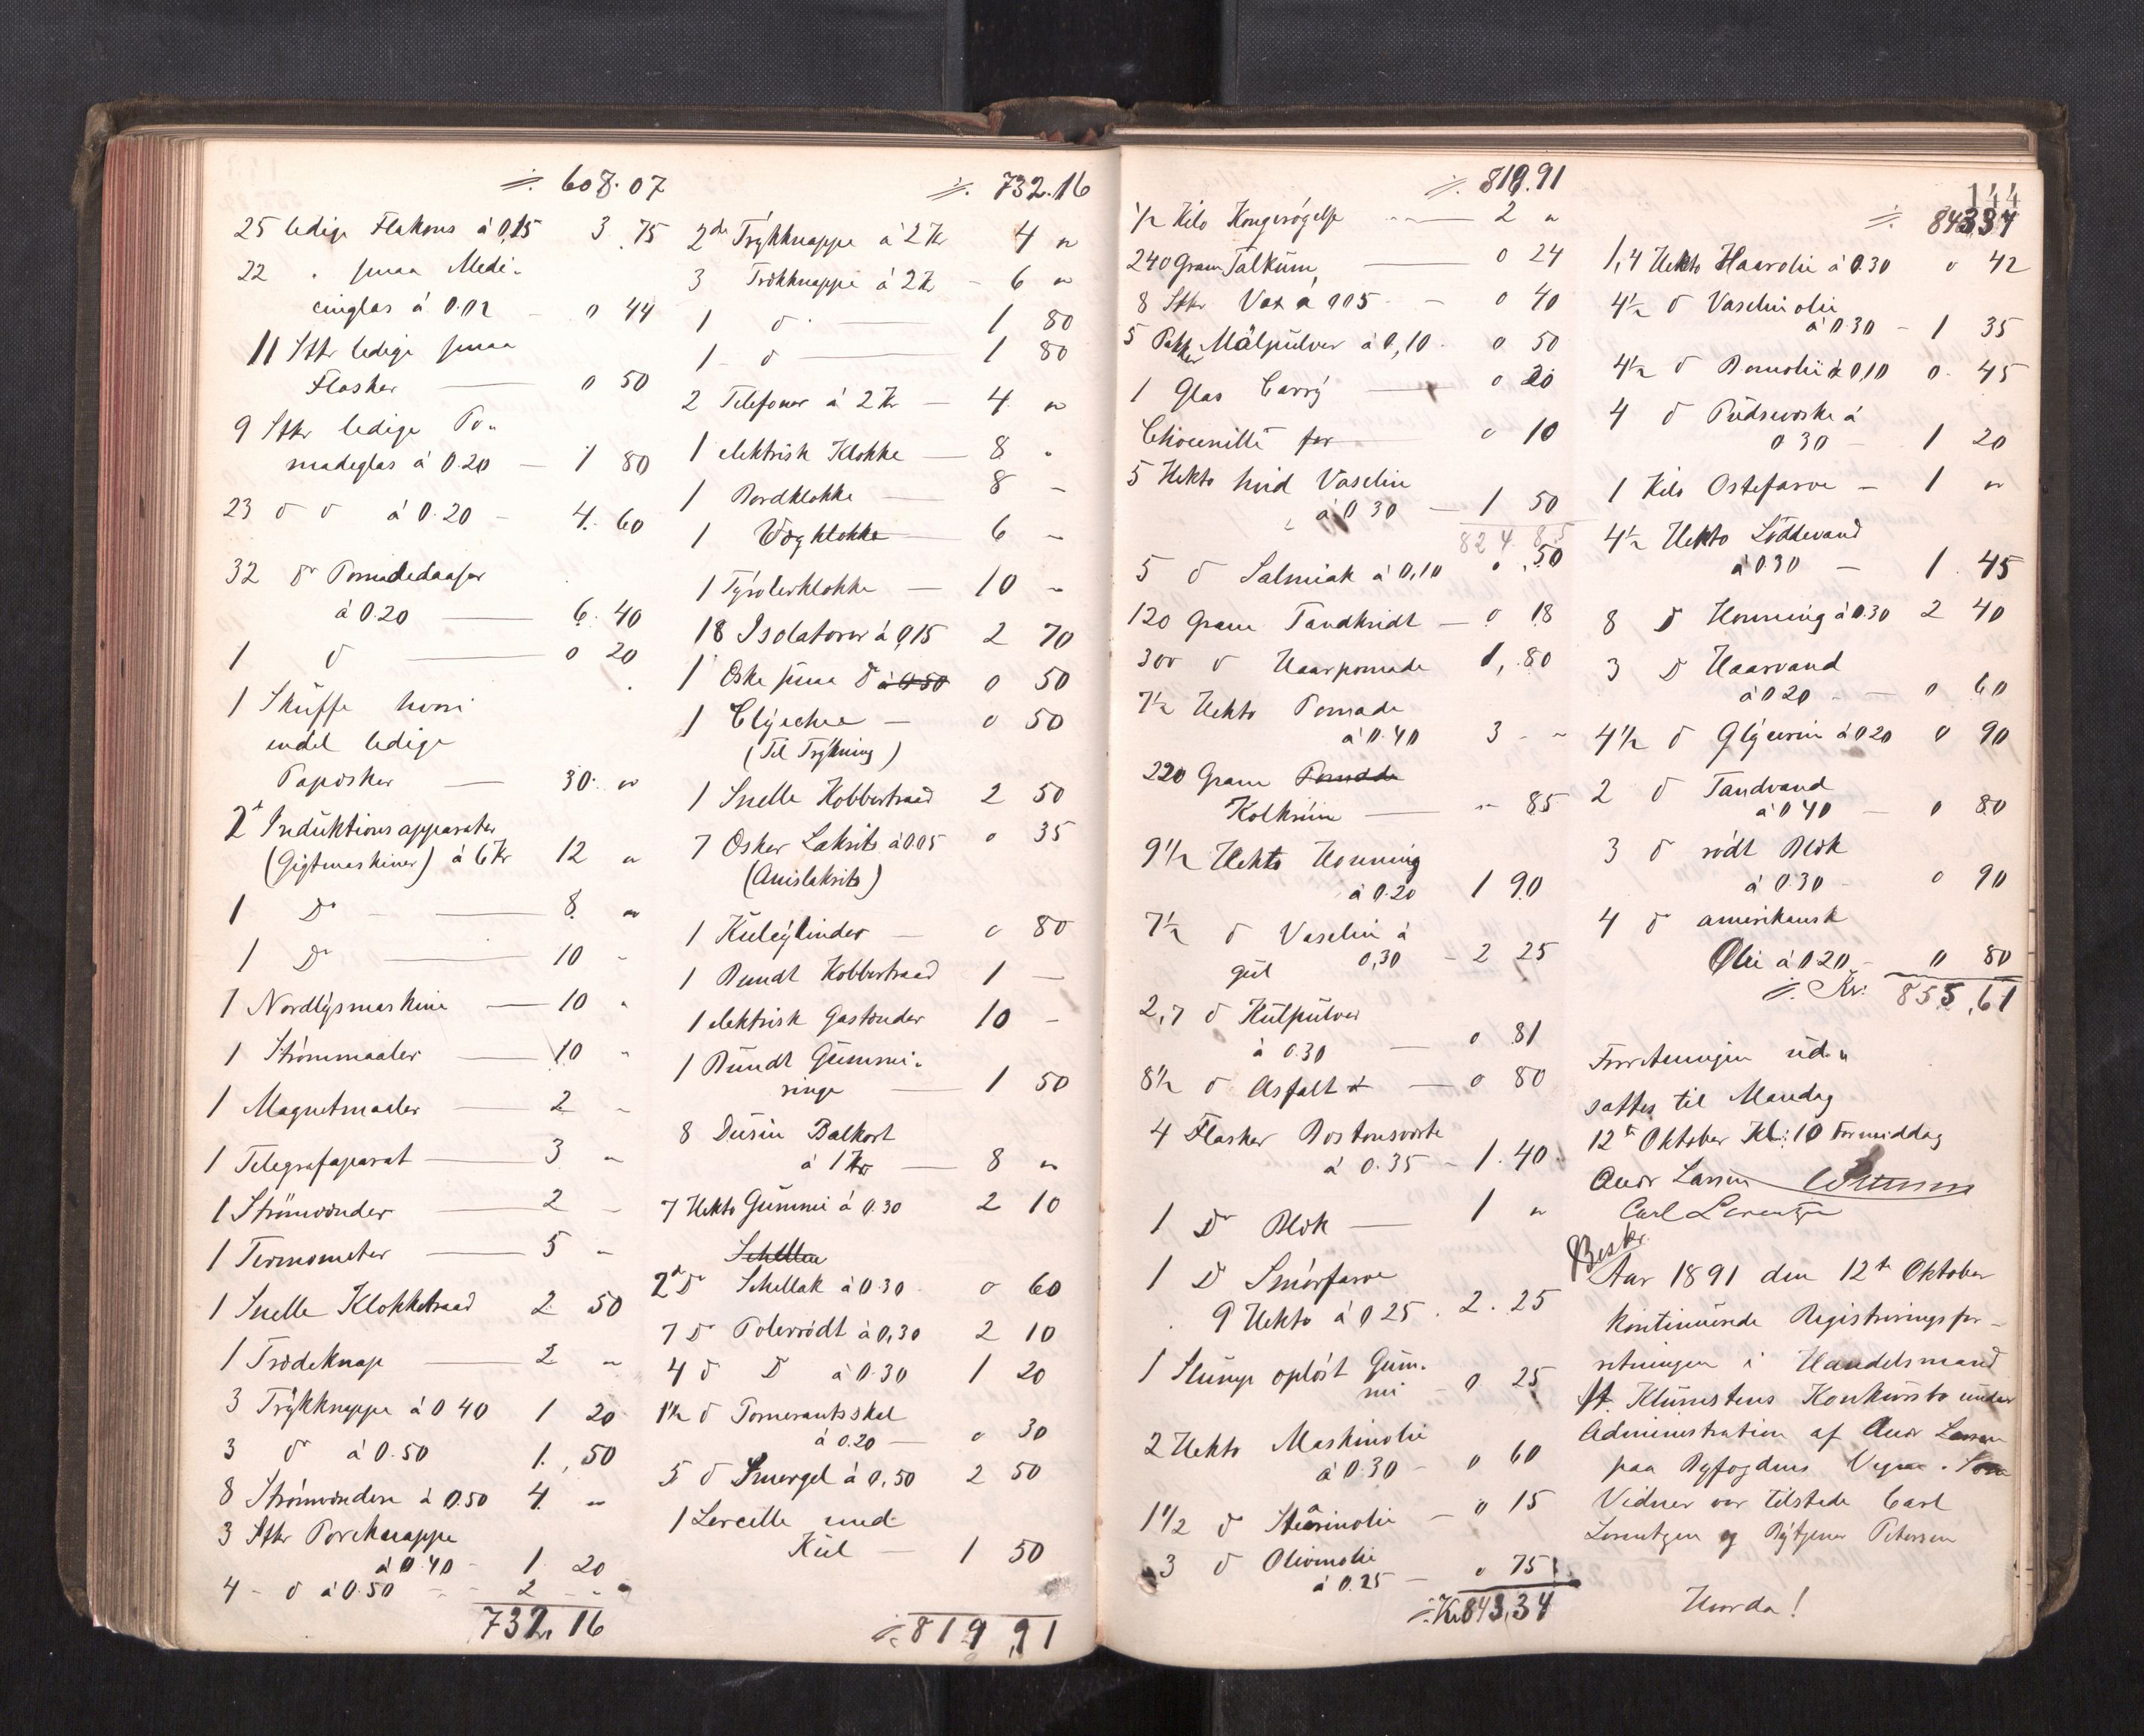 ./. 608.07
25 ledige Flakons à 0,15 3 75
22 " smaa Medi-
cinglas à 0.02 - 0 44
11 Stkr ledige smaa
Flasker — 0 50
9 Stkr ledige Po-
madeglas à 0.20 — 1 80
23 do do à 0.20 - 4. 60
32 do Pomadedaaser
à 0.20 — 6. 40
1 do — 0 20
1 Skuffe hvori
endel ledige
Papæsker — 30. "
2 Induktionsapparater
(Gigtmaskiner) à 6 Kr 12 "
1 Do — 8. "
1 Do — 10 "
1 Nordlysmaskine — 10 "
1 Strømmaaler — 10 "
1 Magnetmaaler — 2 "
1 Telegrafaparat — 3 "
1 Strømvender — 2 "
1 Termometer — 5 "
1 Snelle Klokketraad 2 50
1 Trædeknap — 2 "
3 Trykknappe à 0 40 1 20
3 do à 0.50 1. 50
8 Strømvendere à 0.50 4 "
3 Stkr Pæreknappe
à 0.40 - 1. 20
4 - do à 0.50 - 2 "
732. 16
./. 732.16
2 do Trykknappe à 2 Kr 4 "
3 Trækknappe à 2 Kr - 6 "
1 do — 1 80
1 do — 1 80
2 Telefoner à 2 Kr — 4 "
1 elektrisk Klokke — 8 "
1 Bordklokke — 8 "
1 Vægklokke — 6 "
1 Tyrolerklokke — 10 "
18 Isolatorer à 0,15 2 70
1 Æske smaa do à 0 50 0 50
1 Clyschee — 0 50
(Til Trykning)
1 Snelle Kobbertraad 2 50
7 Æsker Lakrits à 0.05 0 35
(Anislakrits)
1 Kulcylinder — 0 80
1 Bundt Kobbertraad 1 —
1 elektrisk Gastænder 10 -
1 Bundt Gummi-
ringe — 1 50
8 Dusin Balkort
à 1 Kr — 8 "
7 Hekto Gummi à 0.30 2 10
Schellac
2 Do Schellak à 0.30 0 60
7 Do Polerrødt à 0,30 2 10
4 do Do à 0.30 1 20
1½ do Pomerantsskal
à 0.20 — 0 30
5 do Smergel à 0,50 2 50
1 Larcelle med
Kul — 1 50
./. 819,91
./. 819.91
½ Kilo Kongerøgelse — 2 "
240 Gram Talkum — 0 24
8 Stkr Vox à 0 05 - 0 40
5 Pakker Målpulver à 0,10 0 50
1 Glas Carry — 0 20
Chocenille for — 0 10
5 Hekto hvid Vaselin
à 0 30 — 1 50
824 85
5 do Salmiak à 0,10 0.50
120 Gram Tandkridt — 0 18
300 do Haarpomade 1,80
7½ Hekto Pomade
à 0.40 3 "
220 Gram Pomade
Kolkrim — " 85
9½ Hekto Honning
à 0.20 1 90
7½ do Vaselin à
gul 0,30 - 2 25
2,7 do Kulpulver
à 0.30 — 0 81
8½ do Asfalt — 0 80
4 Flasker Bostonsværte
à 0.35 - 1.40
1 Do Blæk — 1 "
1 Do Smørfarve
9 Hekto à 0 25 . 2.25
1 Slump opløst Gum-
mi - 0 25
2 Hekto Maskinolie
à 0.30 - 0 60
1½ do Stearinolie - 0 15
3 do Olivenolie
à 0.25 — 0 75
./. Kr 843,34
144
./. 843 34
1,4 Hekto Haarolie à 0.30 0 42
4½ do Vaselinolie
à 0 30 - 1 35
4½ do Bomolie à 0,10 0. 45
4 do Pudseæske à
0 30 - 1 20
1 Kilo Ostefarve - 1 "
4½ Hekto Loddevand
à 0 30 — 1. 45
8 Do Honning à 0.30 2 40
3 Do Haarvand
à 0 20 — 0 60
4½ do Glycerin à 0 20 0 90
2 do Tandvand
à 0 40 — 0 80
3 do rødt Blæk
à 0.30 - 0 90
4 do amerikansk
Olie à 0 20 - 0 80
./. Kr: 855,61
Forretningen ud-
sattes til Mandag
12te Oktober Kl: 10 Formiddag
Andr Larsen
Carl Lorentzen
Beskr.
Aar 1891 den 12te Oktober
kontinuerede Registreringsfor-
retningen i Handelsmand
St. Klumstens Konkursbo under
Administration af Andr Larsen
paa Byfogdens Vegne. Som
Vidner var tilstede Carl
Lorentzen og Bytjener Petersen
Hvorda!